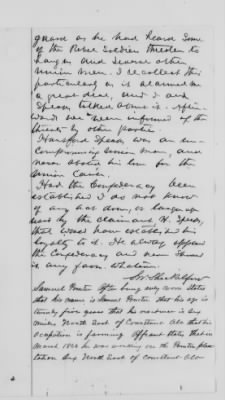 guard as he had heard some
of the Rebel Soldiers threten to
hang him and several other
Union men. I recollect this
particularly as it alarmed me
a great deal, and I and
Speer talked about it. After
wards we were informed of the
threats by other parties.
Hansford Speer was an un-
compromising Union man, and
never abated his love for the
Union Cause.
Had the Confederacy been
established I do not know
of any act done, or language
used by the claimant H. Speer,
that would have established his
loyalty to it. He always opposed
the Confederacy and never favored
it any form whatever.
Samuel Porter After being duly sworn states
that his name is Samuel Porter that his age is
twenty five years that his residence is six
miles North East of Courtland Ala that his
ocupation is farming Affiant states that in
March 1864 he was working on the Porter plan
tation Six North East of Courtland Ala